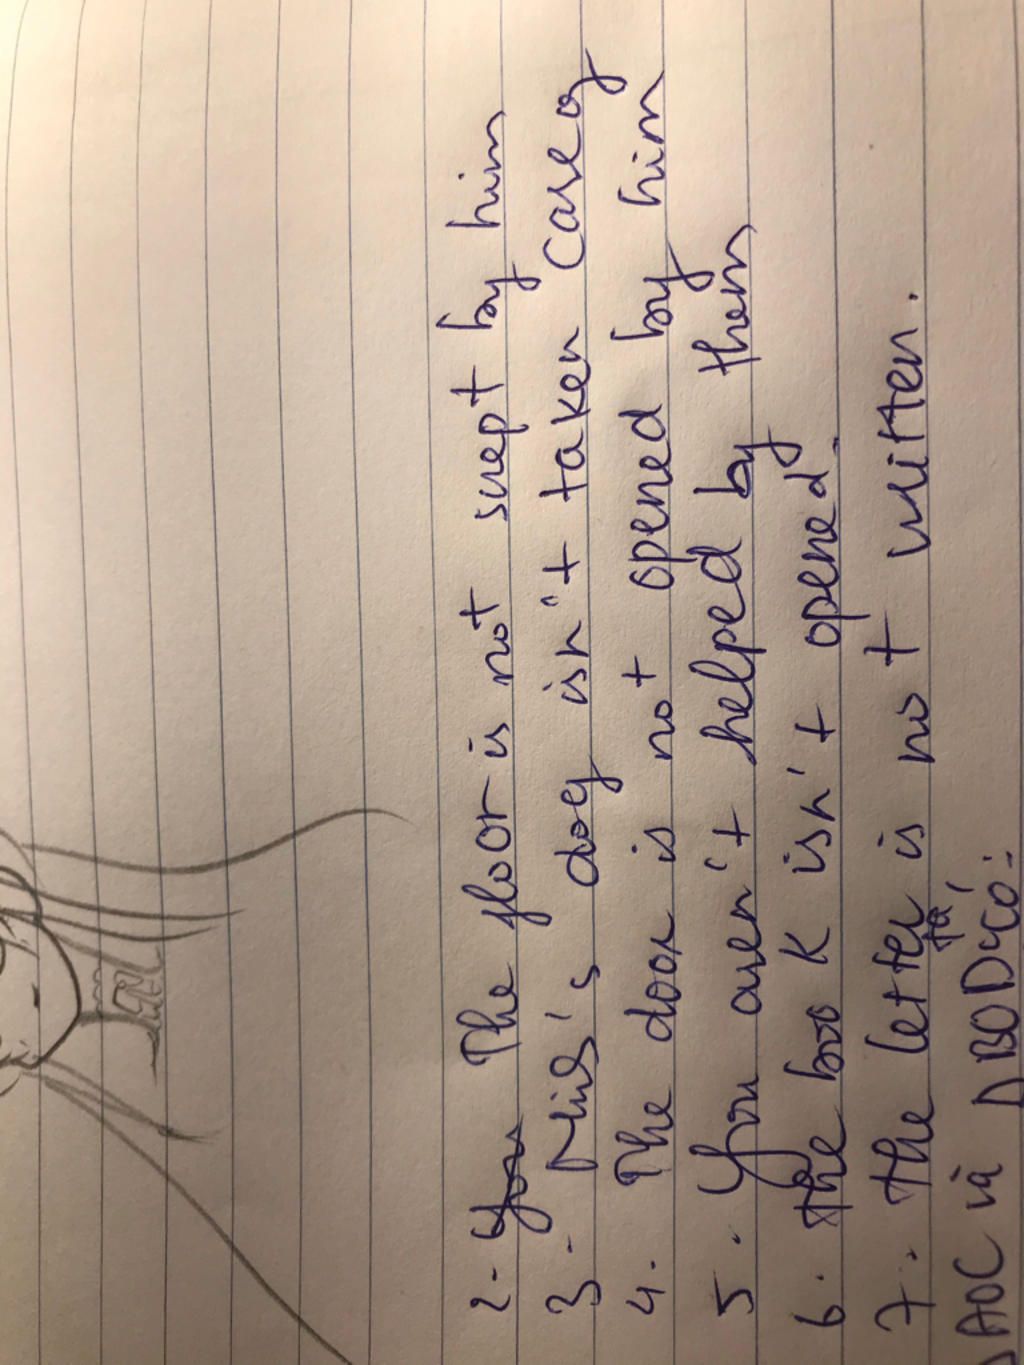 2. You The floor is not swept by him
3. Minh's dog isn't taken care of
4. The door is not opened by him
5. You aren't helped by them
6. the book isn't opened.
7. the letter is not written.
ta
AOC và BOD có: